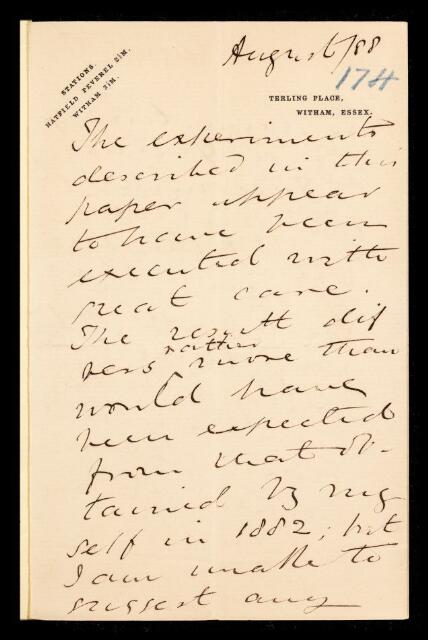 August 6/88
174
STATIONS.
HATFIELD PEVEREL 2½M.
WITHAM 3½M.
TERLING PLACE,
WITHAM, ESSEX.
The experiments
described in this
paper appear
to have been
executed with
great care.
The result dif
fers rather more than
would have
been expected
from that ob-
tained by my
self in 1882; but
I am unable to
suggest any